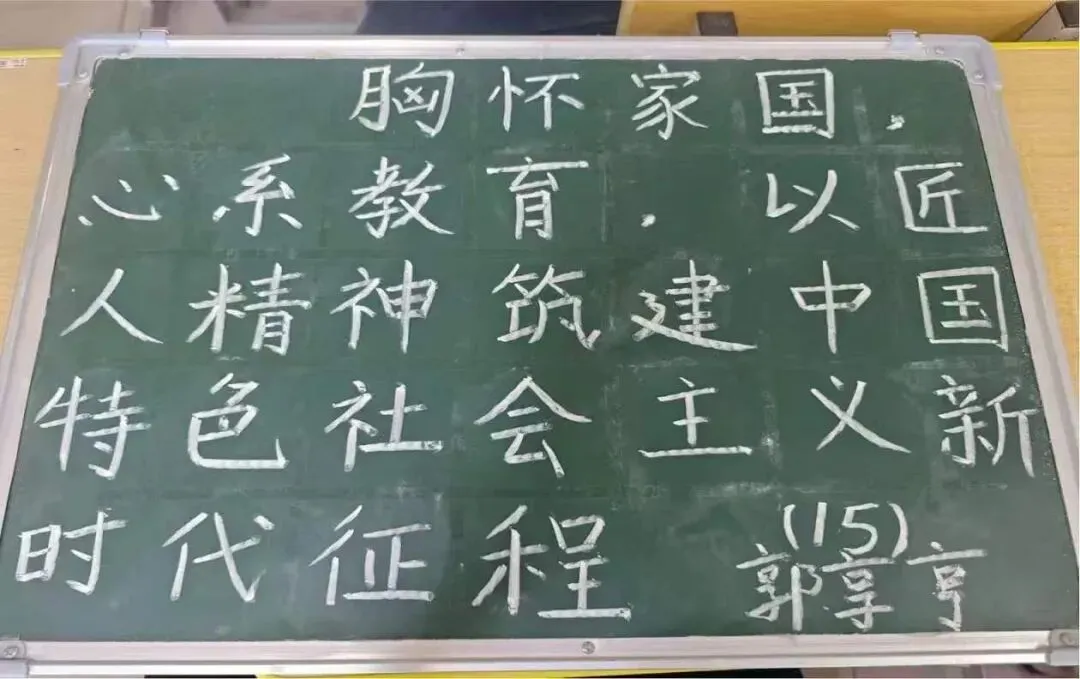 胸怀家国，
心系教育，以匠
人精神筑建中国
特色社会主义新
时代征程
(15)
郭享亨